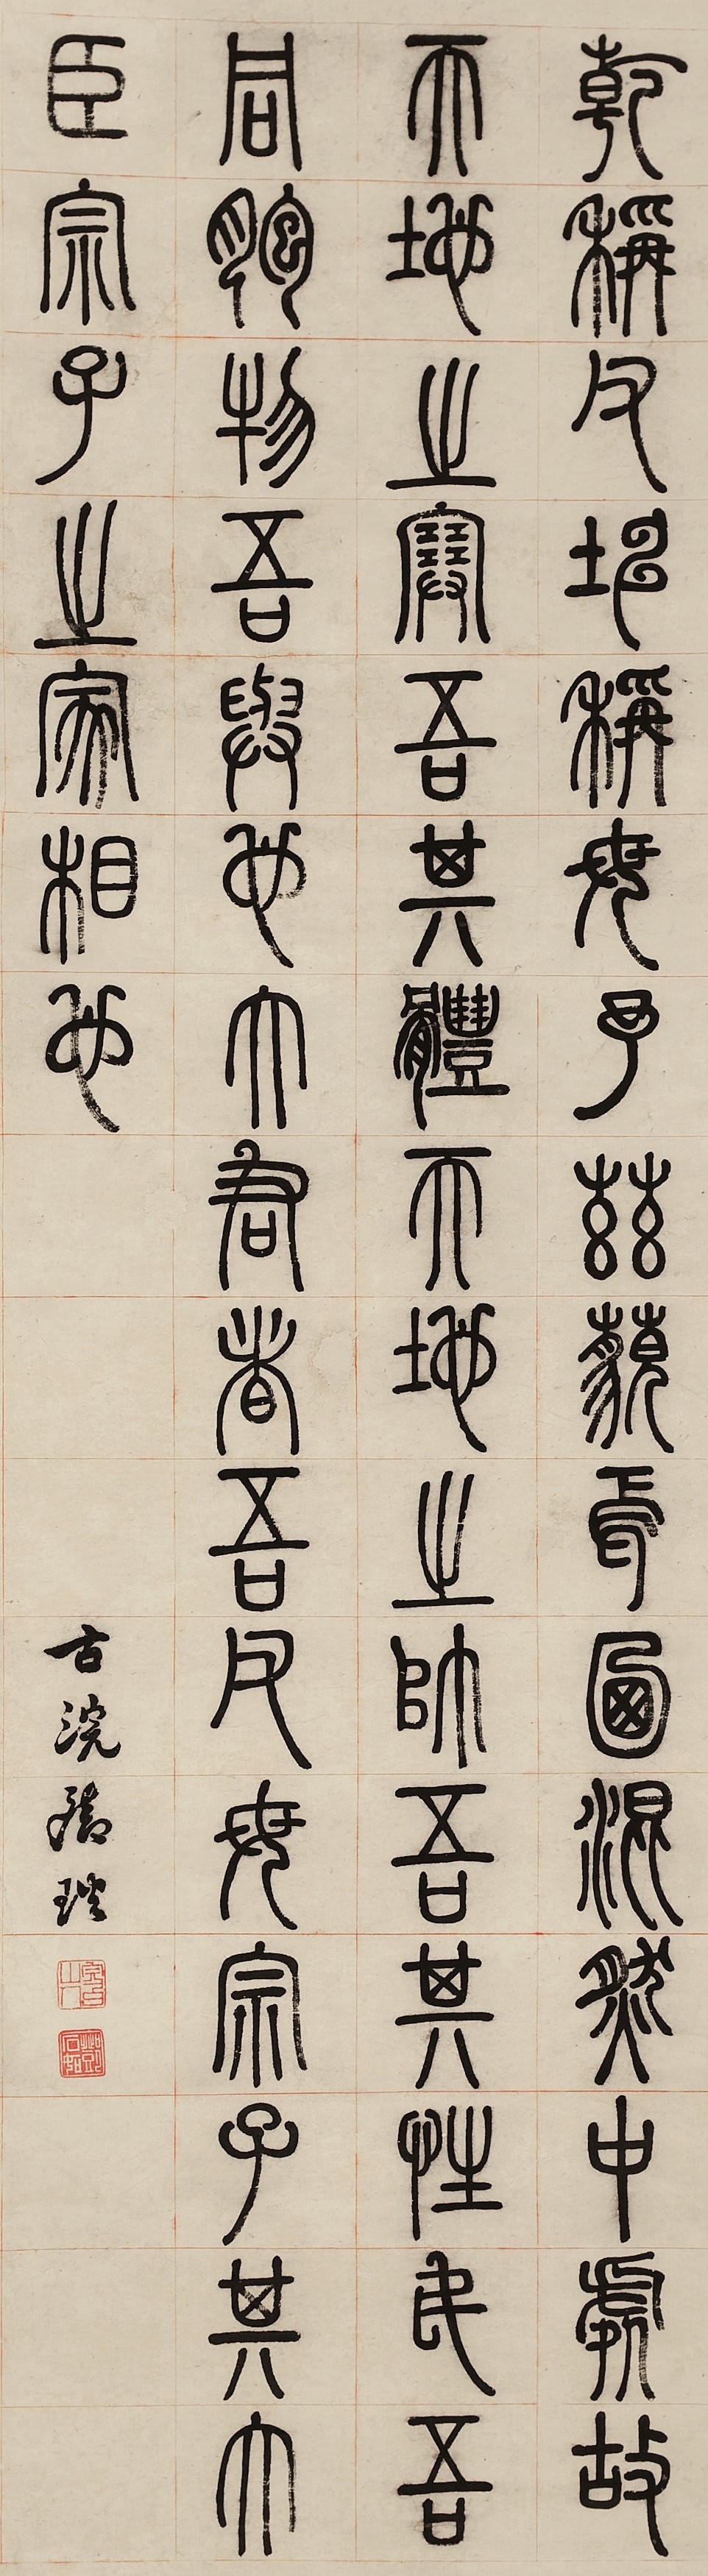 乾稱父坤稱母予茲藐焉迺混然中處故
天地之塞吾其體天地之帥吾其性民吾
同胞物吾與也大君者吾父母宗子其大
臣宗子之家相也
古浣鄧琰
完白山人
鄧石如